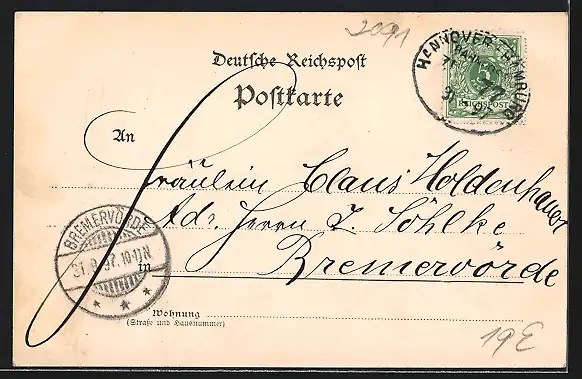 2091
Deutsche Reichspost
Postkarte
HANNOVER
REICHSPOST
An
Fräulein Claus Holdenhauer
Adr. Herrn L. Söhlke
BREMERVÖRDE
in
Bremervörde
Wohnung
(Straße und Hausnummer)
19E